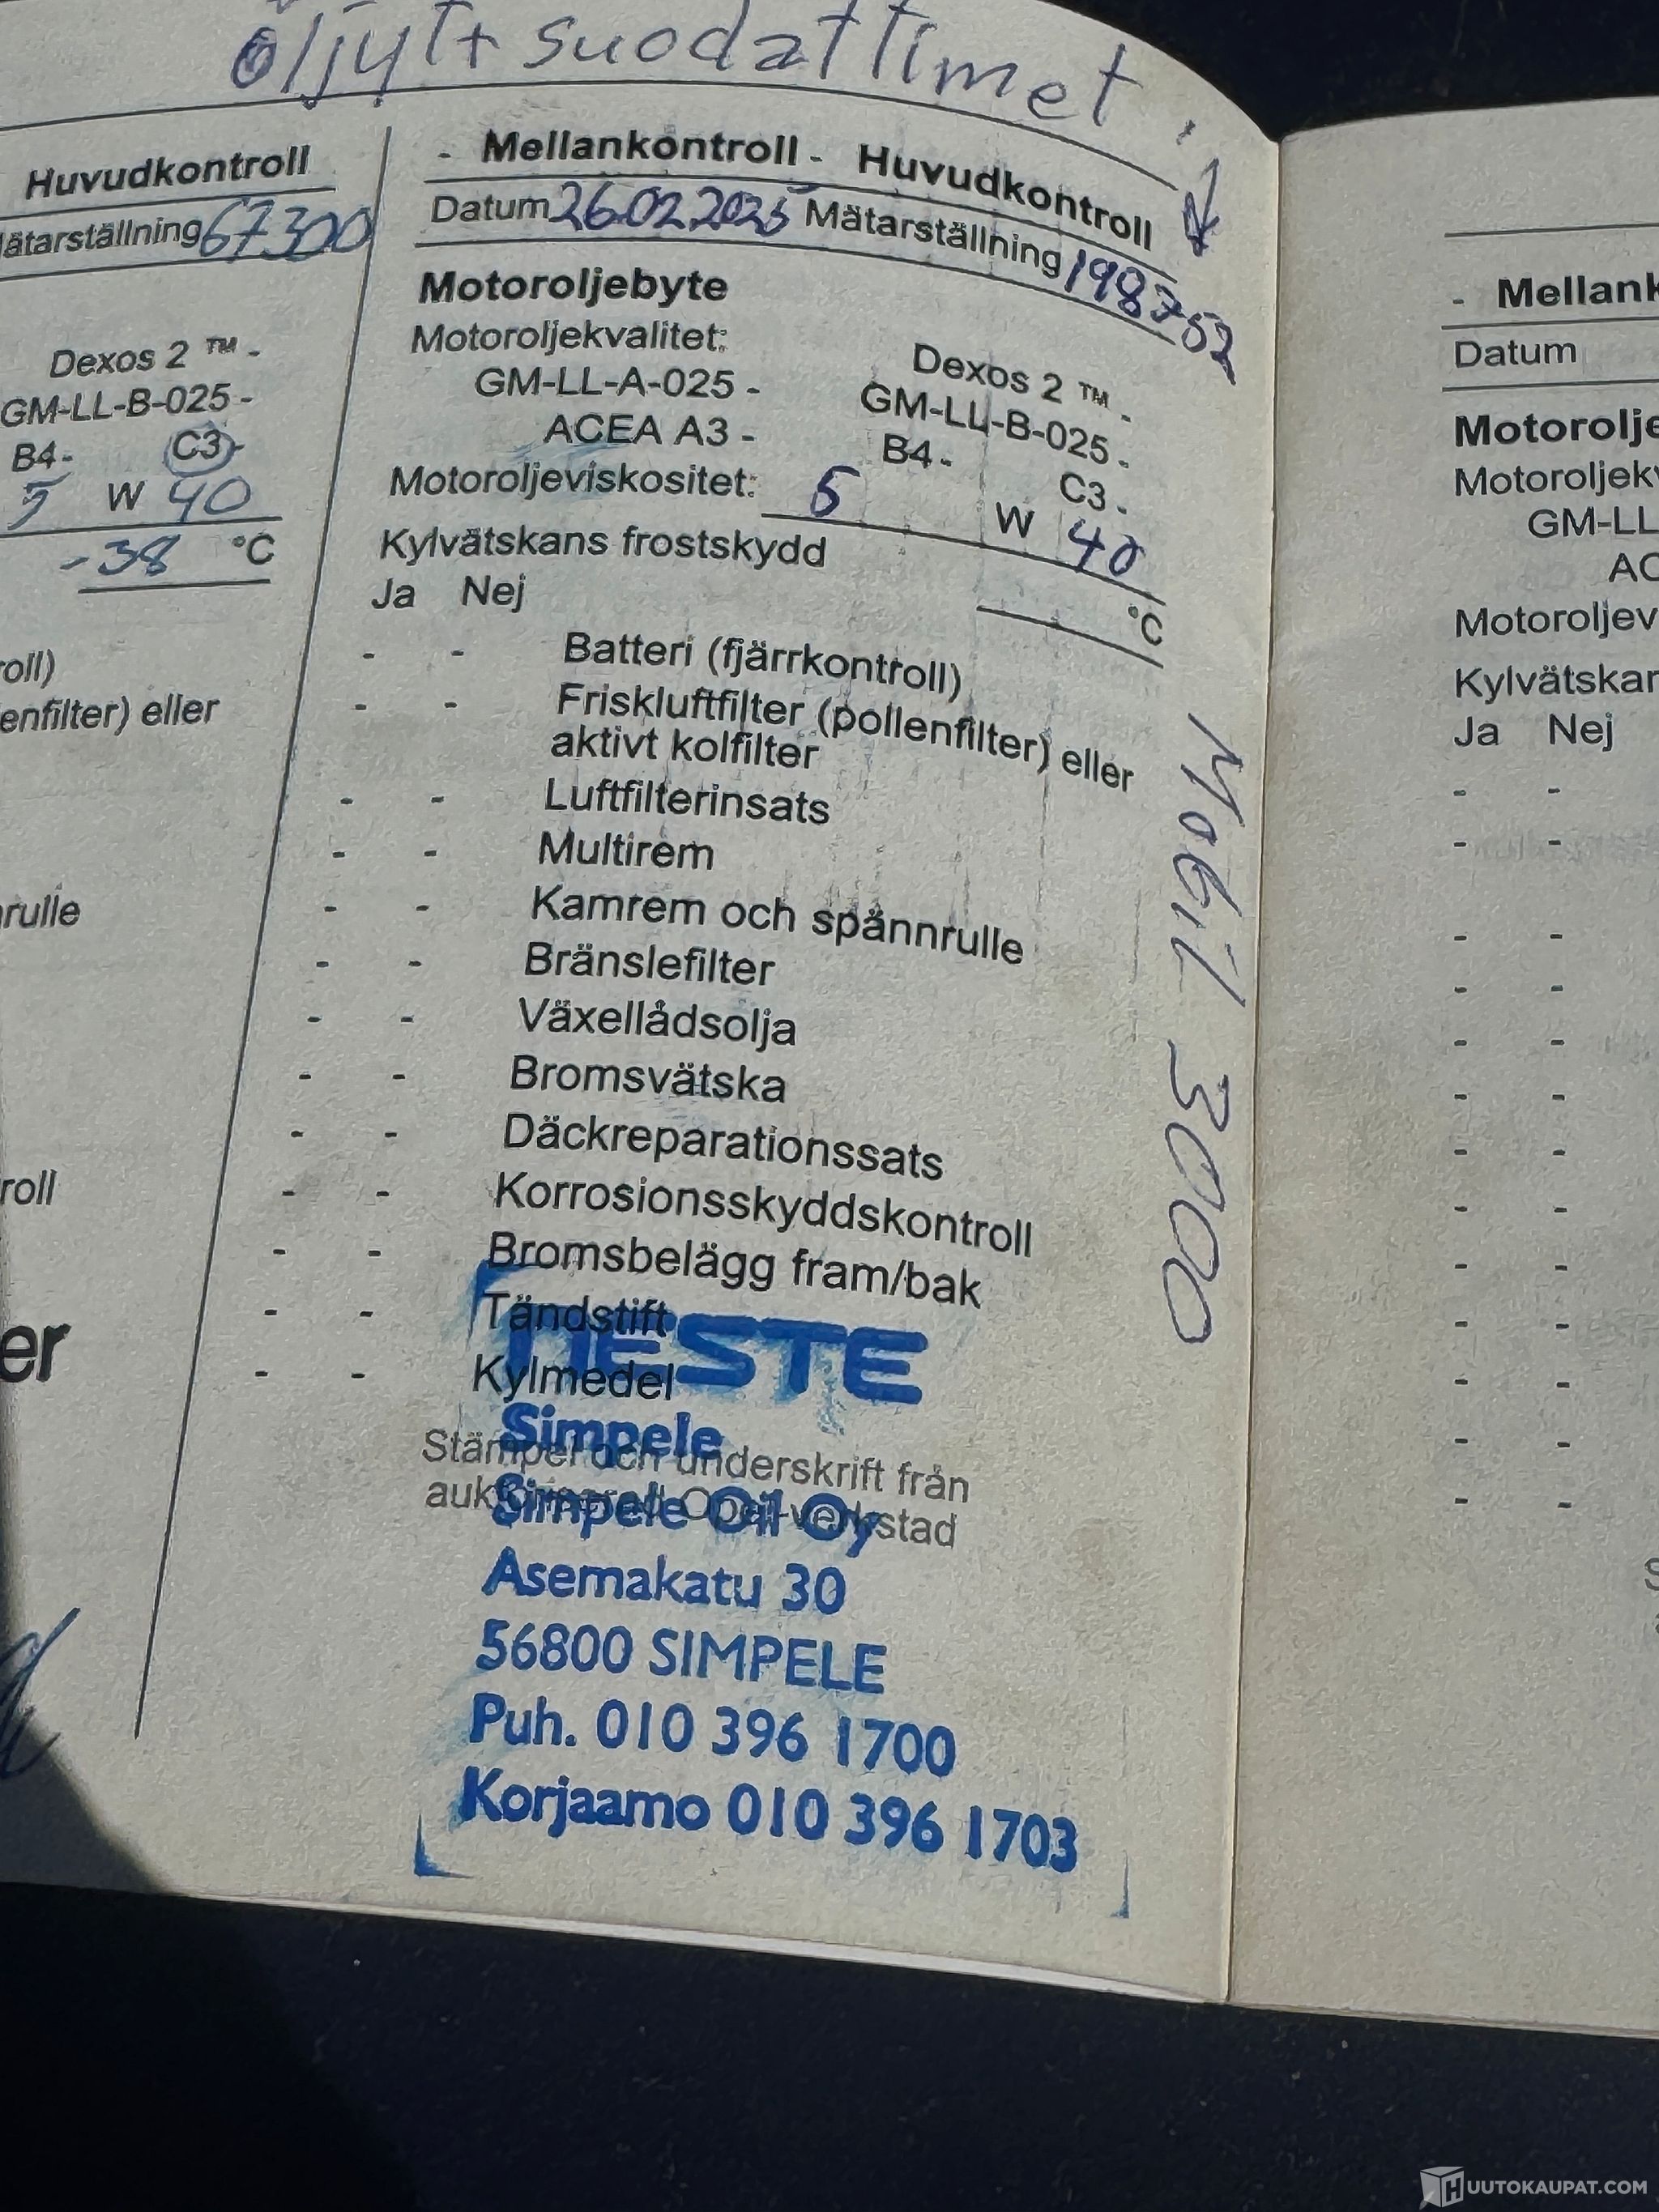 öljyt+suodattimet
Huvudkontroll
Mätarställning 67300
Dexos 2 ™ -
GM-LL-B-025 -
B4 - C3 -
5 W 40
-38 °C
roll)
enfilter) eller
rulle
roll
er
- Mellankontroll - Huvudkontroll
Datum 26.02.2025 Mätarställning 198752
Motoroljebyte
Motoroljekvalitet:
Dexos 2 ™ -
GM-LL-A-025 - GM-LL-B-025 -
ACEA A3 - B4 - C3 -
Motoroljeviskositet: 5 W 40
Kylvätskans frostskydd °C
Ja Nej
- - Batteri (fjärrkontroll)
- - Friskluftfilter (pollenfilter) eller
aktivt kolfilter
- - Luftfilterinsats
- - Multirem
- - Kamrem och spännrulle
- - Bränslefilter
- - Växellådsolja
- - Bromsvätska
- - Däckreparationssats
- - Korrosionsskyddskontroll
- - Bromsbelägg fram/bak
- - Tändstift
- - Kylmedel
Stämpel och underskrift från
auktoriserad Opel-verkstad
NESTE
Simpele
Simpele Oil Oy
Asemakatu 30
56800 SIMPELE
Puh. 010 396 1700
Korjaamo 010 396 1703
Mobil 3000
- Mellank
Datum
Motorolje
Motoroljekv
GM-LL
AC
Motoroljev
Kylvätskan
Ja Nej
HUUTOKAUPAT.COM